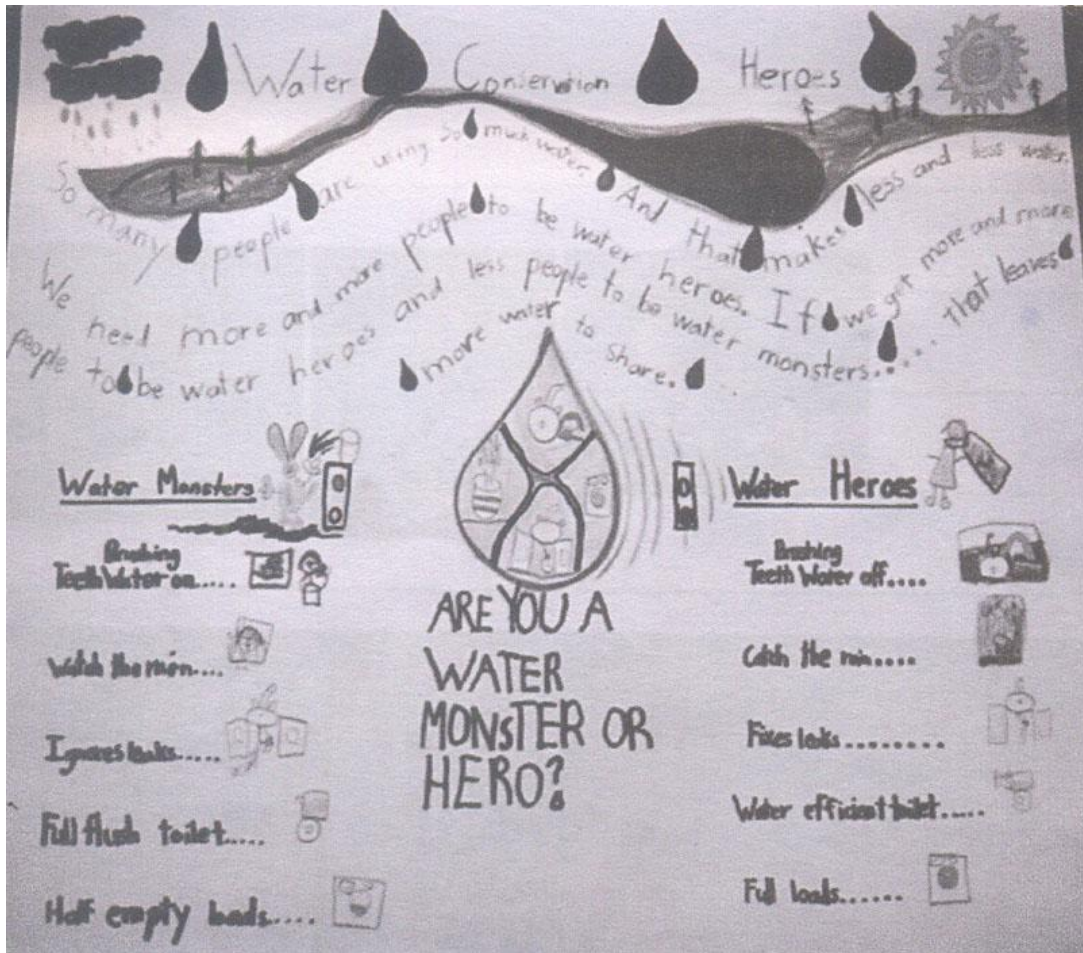 Water Conservation Heroes
So many people are using so much water. And that makes less and less water.
We need more and more people to be water heroes. If we get more and more
people to be water heroes and less people to be water monsters.... That leaves
more water to share...
Water Monsters
Brushing
Teeth Water on.....
Watch the rain....
Ignores leaks.....
Full flush toilet.....
Half empty loads.....
ARE YOU A
WATER
MONSTER OR
HERO?
Water Heroes
Brushing
Teeth Water off....
Catch the rain....
Fixes leaks.........
Water efficient toilet.....
Full loads......